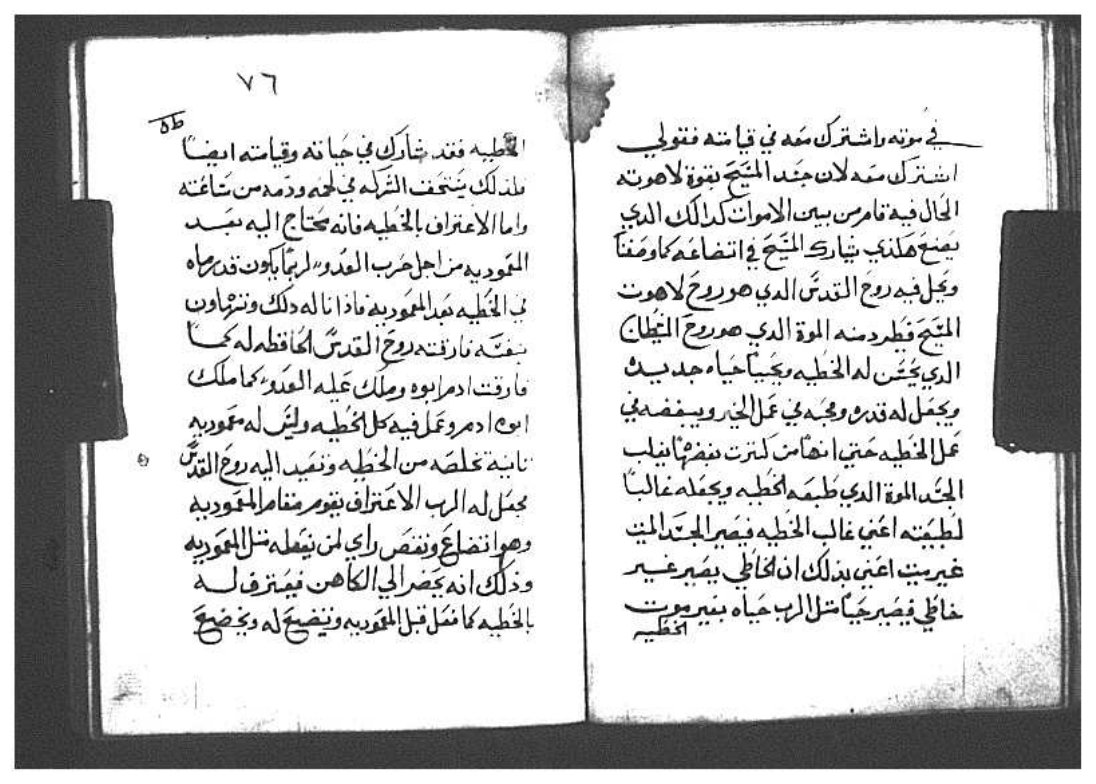 في موته واشترك معه في قيامته فقولي
اشترك معه لان جسد المسيح بقوة لاهوته
الحال فيه قام من بين الاموات كدالك الدي
يصنع هكذي يشارك المسيح في اتضاعه كما وصفنا
ويحل فيه روح القدس الدي هو روح لاهوت
المسيح فطرد منه الموة الدي هو روح الشيطان
الدي يحسن له الخطيه ويحييا حياه جديده
ويجعل له قدره ومحبه في عمل الخير ويبغضه في
عمل الخطيه حتي انه من كترت بغضها يغلب
الجسد الموة الدي طبعه الخطيه ويجعله غالبا
لطبيعته اعني غالب الخطيه فيصير الجسد الميت
غير ميت اعني بذلك ان الخاطي يصير غير
خاطي فيصير حيا متل الرب حياه بغير موت
الخطيه
٧٦
الخطيه فقد شارك في حياته وقيامته ايضا
فلذلك يستحق الشركه في لحمه ودمه من ساعته
واما الاعتراف بالخطيه فانه محتاج اليه بعد
المعموديه من اجل حرب العدو لربما يكون قد رماه
في الخطيه بعد المعموديه فاذا ناله دلك وتهاون
بنفسه فارقته روح القدس الحافظه له كما
فارقت ادم ابوه وملك عليه العدو كما ملك
ابوه ادم وعمل فيه كل الخطيه وليس له معموديه
تانيه تخلصه من الخطيه وتعيد اليه روح القدس
فجعل له الرب الاعتراف يقوم مقام المعموديه
وهو اتضاع ونقص راي لمن يفعله متل المعموديه
وذلك انه يحضر الي الكاهن فيعترف له
بالخطيه كما فعل قبل المعموديه ويتضع له ويخضع